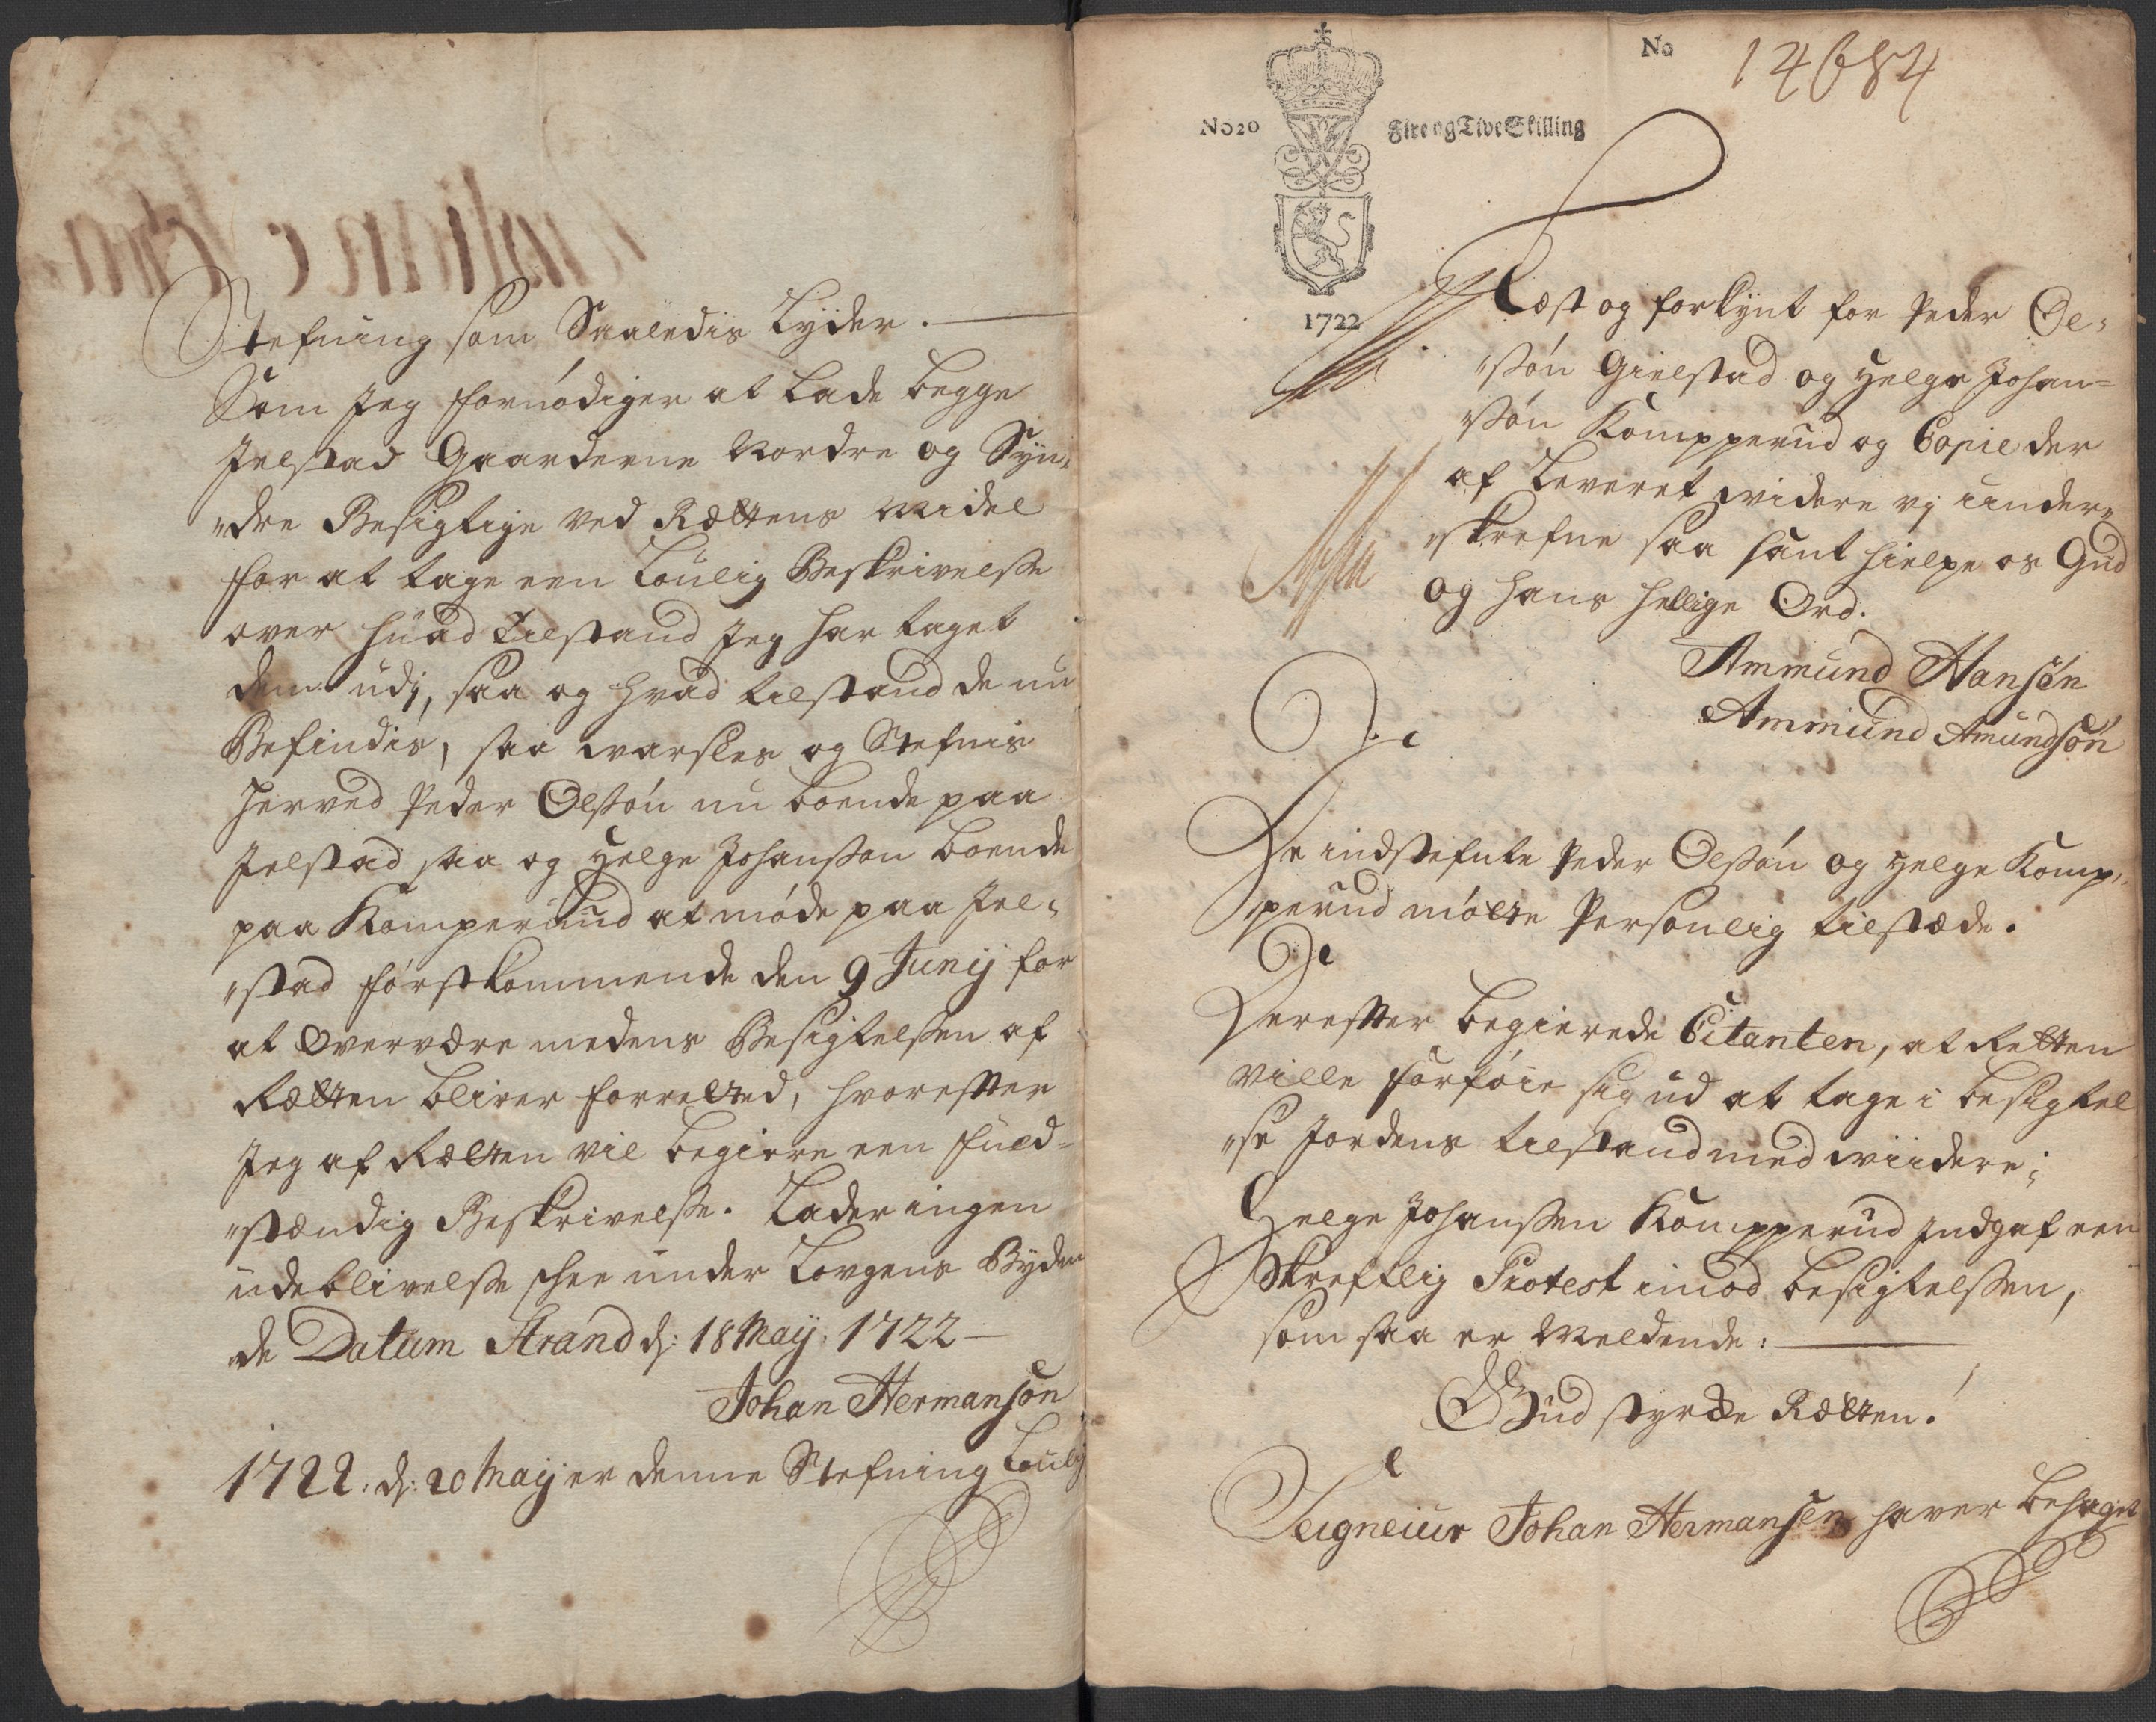 Stefning som Saaledis Lyder.
Som Jeg fornødiger at Lade begge
Jelstad Gaarderne Nordre og Syn,
"dre Besigtige ved Rættens Midel
for at tage een Loulig Beskrivelsse
over huad tilstand Jeg har taget
dem udj, saa og hvad tilstand de nu
Befindis, saa warsles og Stefnis
herved Peder Olssøn nu boende paa
Jelstad saa og Helge Johanssøn boende
paa Kamperuud at møde paa Jel,
"stad førstkommende den 9 Junij for
at Overvære medens Besigtelssen af
Rætten bliver forretted, hvorefter
Jeg af Rætten vil begiere een fuld=
"stændig Beskrivelsse. Lader ingen
udeblivelsse skee under Lovgens Byden
"de Datum Strand dj: 18 Maij: 1722
Johan Hermansøn
1722: dj: 20 Maij er denne Stefning Loulig
No 14684
No 20 Fire og Tive Skilling
1722
Læst og forkynt for Peder Ol,
"ssøn Gielstad og Helge Johan=
ssøn Kompperud og Copie der
af Leveret widere vj under,
"skrefne saa sant hielpe os Gud
og Hans hellige Ord.
Ammund Hansøn
Ammund Amundsøn
De indstefnte Peder Olssøn og Helge Komp,
"perud mødte Personlig tilstæde.
Derefter begierede Citanten, at Retten
ville forføie sig ud at tage i besigtel
"se Jordens tilstand med wiidere;
Helge Johanssen Kompperud Indgaf een
Skreftlig Protest imod besigtelssen,
som saa er Meldende:
Gud styrcke Rætten!
Seigneiur Johan Hermansen haver behaget